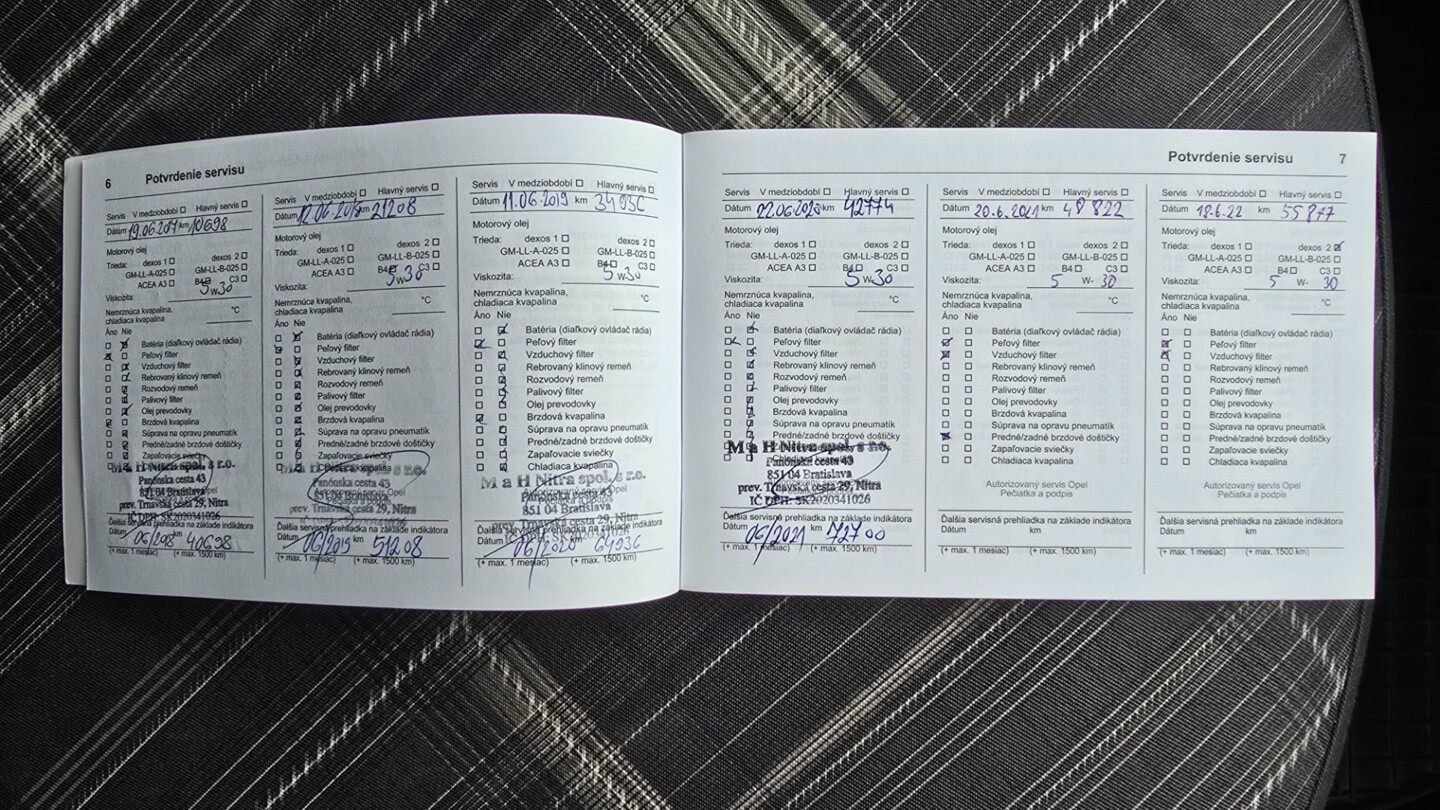 6 Potvrdenie servisu
Servis V medziobdobí Hlavný servis
Dátum 19.06.2017 km 10698
Motorový olej
Trieda: dexos 1 dexos 2
GM-LL-A-025 GM-LL-B-025
ACEA A3 B4 C3
Viskozita: 5W30
Nemrznúca kvapalina,
chladiaca kvapalina °C
Áno Nie
Batéria (diaľkový ovládač rádia)
Peľový filter
Vzduchový filter
Rebrovaný klinový remeň
Rozvodový remeň
Palivový filter
Olej prevodovky
Brzdová kvapalina
Súprava na opravu pneumatík
Predné/zadné brzdové doštičky
Zapaľovacie sviečky
M a H Nitra spol. s r.o.
Panónska cesta 43
851 04 Bratislava
prev. Trnavská cesta 29, Nitra
IČ DPH: SK2020341026
Ďalšia servisná prehliadka na základe indikátora
Dátum km 40698
(+ max. 1 mesiac) (+ max. 1500 km)
Servis V medziobdobí Hlavný servis
Dátum 12.06.2018 km 21208
Motorový olej
Trieda: dexos 1 dexos 2
GM-LL-A-025 GM-LL-B-025
ACEA A3 B4 C3
Viskozita: 5W30
Nemrznúca kvapalina,
chladiaca kvapalina °C
Áno Nie
Batéria (diaľkový ovládač rádia)
Peľový filter
Vzduchový filter
Rebrovaný klinový remeň
Rozvodový remeň
Palivový filter
Olej prevodovky
Brzdová kvapalina
Súprava na opravu pneumatík
Predné/zadné brzdové doštičky
Zapaľovacie sviečky
Chladiaca kvapalina
M a H Nitra spol. s r.o.
Panónska cesta 43
851 04 Bratislava
prev. Trnavská cesta 29, Nitra
IČ DPH: SK2020341026
Ďalšia servisná prehliadka na základe indikátora
Dátum 06/2019 km 51208
(+ max. 1 mesiac) (+ max. 1500 km)
Servis V medziobdobí Hlavný servis
Dátum 11.06.2019 km 34936
Motorový olej
Trieda: dexos 1 dexos 2
GM-LL-A-025 GM-LL-B-025
ACEA A3 B4 C3
Viskozita: 5W30
Nemrznúca kvapalina,
chladiaca kvapalina °C
Áno Nie
Batéria (diaľkový ovládač rádia)
Peľový filter
Vzduchový filter
Rebrovaný klinový remeň
Rozvodový remeň
Palivový filter
Olej prevodovky
Brzdová kvapalina
Súprava na opravu pneumatík
Predné/zadné brzdové doštičky
Zapaľovacie sviečky
Chladiaca kvapalina
M a H Nitra spol. s r.o.
Panónska cesta 43
851 04 Bratislava
prev. Trnavská cesta 29, Nitra
Ďalšia servisná prehliadka na základe indikátora
Dátum 06/2020 km 64936
(+ max. 1 mesiac) (+ max. 1500 km)
Potvrdenie servisu 7
Servis V medziobdobí Hlavný servis
Dátum 22.06.2020 km 42774
Motorový olej
Trieda: dexos 1 dexos 2
GM-LL-A-025 GM-LL-B-025
ACEA A3 B4 C3
Viskozita: 5W30
Nemrznúca kvapalina,
chladiaca kvapalina °C
Áno Nie
Batéria (diaľkový ovládač rádia)
Peľový filter
Vzduchový filter
Rebrovaný klinový remeň
Rozvodový remeň
Palivový filter
Olej prevodovky
Brzdová kvapalina
Súprava na opravu pneumatík
Predné/zadné brzdové doštičky
M a H Nitra spol. s r.o.
Panónska cesta 43
851 04 Bratislava
prev. Trnavská cesta 29, Nitra
IČ DPH: SK2020341026
Ďalšia servisná prehliadka na základe indikátora
Dátum 06/2021 km 72700
(+ max. 1 mesiac) (+ max. 1500 km)
Servis V medziobdobí Hlavný servis
Dátum 20.6.2021 km 48822
Motorový olej
Trieda: dexos 1 dexos 2
GM-LL-A-025 GM-LL-B-025
ACEA A3 B4 C3
Viskozita: 5 W- 30
Nemrznúca kvapalina,
chladiaca kvapalina °C
Áno Nie
Batéria (diaľkový ovládač rádia)
Peľový filter
Vzduchový filter
Rebrovaný klinový remeň
Rozvodový remeň
Palivový filter
Olej prevodovky
Brzdová kvapalina
Súprava na opravu pneumatík
Predné/zadné brzdové doštičky
Zapaľovacie sviečky
Chladiaca kvapalina
Autorizovaný servis Opel
Pečiatka a podpis
Ďalšia servisná prehliadka na základe indikátora
Dátum km
(+ max. 1 mesiac) (+ max. 1500 km)
Servis V medziobdobí Hlavný servis
Dátum 18.6.22 km 55877
Motorový olej
Trieda: dexos 1 dexos 2
GM-LL-A-025 GM-LL-B-025
ACEA A3 B4 C3
Viskozita: 5 W- 30
Nemrznúca kvapalina,
chladiaca kvapalina °C
Áno Nie
Batéria (diaľkový ovládač rádia)
Peľový filter
Vzduchový filter
Rebrovaný klinový remeň
Rozvodový remeň
Palivový filter
Olej prevodovky
Brzdová kvapalina
Súprava na opravu pneumatík
Predné/zadné brzdové doštičky
Zapaľovacie sviečky
Chladiaca kvapalina
Autorizovaný servis Opel
Pečiatka a podpis
Ďalšia servisná prehliadka na základe indikátora
Dátum km
(+ max. 1 mesiac) (+ max. 1500 km)